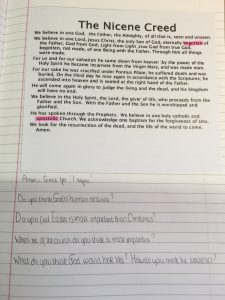 The Nicene Creed
We believe in one God, the Father, the Almighty, of all that is, seen and unseen.
We believe in one Lord, Jesus Christ, the only Son of God, eternally begotten of
the Father, God from God, Light from Light ,true God from true God,
begotten, not made, of one Being with the Father. Through him all things
were made.
For us and for our salvation he came down from heaven by the power of the
Holy Spirit he became incarnate from the Virgin Mary, and was made man.
For our sake he was crucified under Pontius Pilate, he suffered death and was
buried. On the third day he rose again in accordance with the Scriptures; he
ascended into heaven and is seated at the right hand of the Father.
He will come again in glory to judge the living and the dead, and his kingdom
will have no end.
We believe in the Holy Spirit, the Lord, the giver of life, who proceeds from the
Father and the Son. With the Father and the Son he is worshipped and
glorified.
He has spoken through the Prophets. We believe in one holy catholic and
apostolic Church. We acknowledge one baptism for the forgiveness of sins.
We look for the resurrection of the dead, and the life of the world to come.
Amen.
Amen - "I agree"
Do you think God is human or a
Do you feel Easter is more important than Christmas?
Which of the church do you think is most important?
What do you think God would look like? How do you think he would